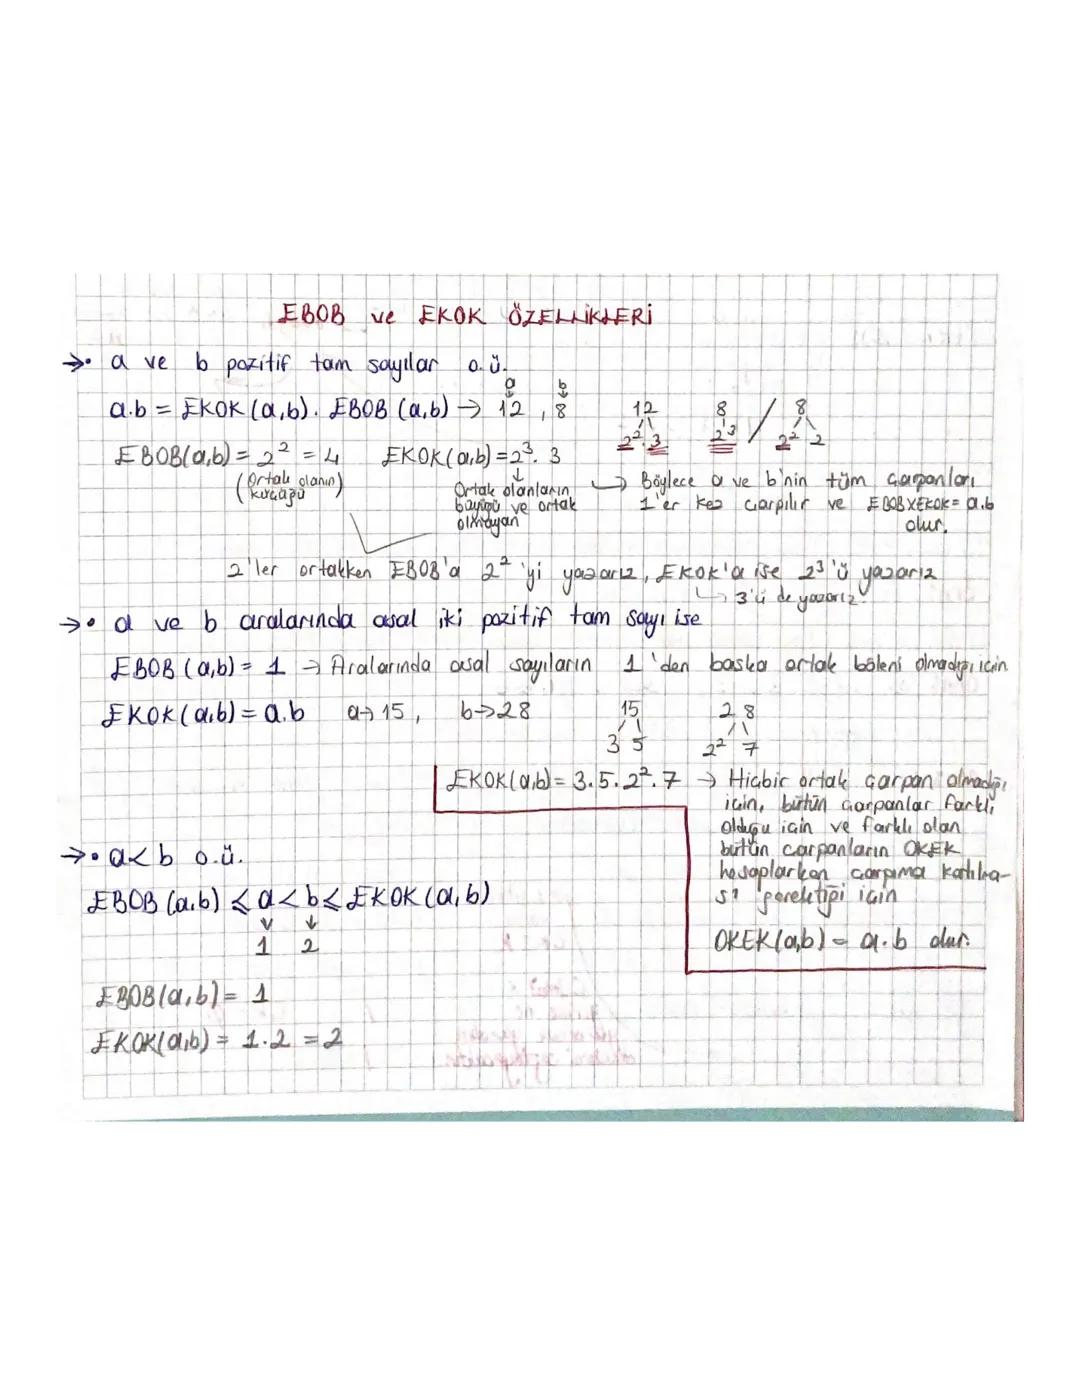 EBOB ve EKOK ÖZELLİKLERİ
→• a ve b pozitif tam sayılar o.ü.
a b
a.b = EKOK (a,b). EBOB (a,b) → 12 , 8
12 8 / 8
2².3 2³ 2² 2
EBOB(a,b) = 2² = 4 EKOK(a,b) = 2³. 3
(Ortak olanın küçüğü)
Ortak olanların
büyüğü ve ortak
olmayan
→ Böylece a ve b'nin tüm çarpanları
1'er kez çarpılır ve EBOBXEKOK= a.b
olur.
2'ler ortakken EBOB'a 2² 'yi yazarız, EKOK'a ise 2³'ü yazarız
↳ 3'ü de yazarız.
→• a ve b aralarında asal iki pozitif tam sayı ise
EBOB (a,b) = 1 → Aralarında asal sayıların 1'den başka ortak böleni olmadığı için
EKOK(a,b) = a.b a→ 15 , b→28
15 28
3 5 2² 7
EKOK(a,b)= 3.5.2².7 → Hiçbir ortak çarpan olmadığı
için, bütün çarpanlar farklı
olduğu için ve farklı olan
bütün çarpanların OKEK
hesaplarken çarpıma katılma-
sı gerektiği için
OKEK(a,b) = a.b olur.
→• a<b o.ü.
EBOB (a,b) ≤ a < b ≤ EKOK (a,b)
1 2
EBOB(a,b) = 1
EKOK(a,b) = 1.2 = 2